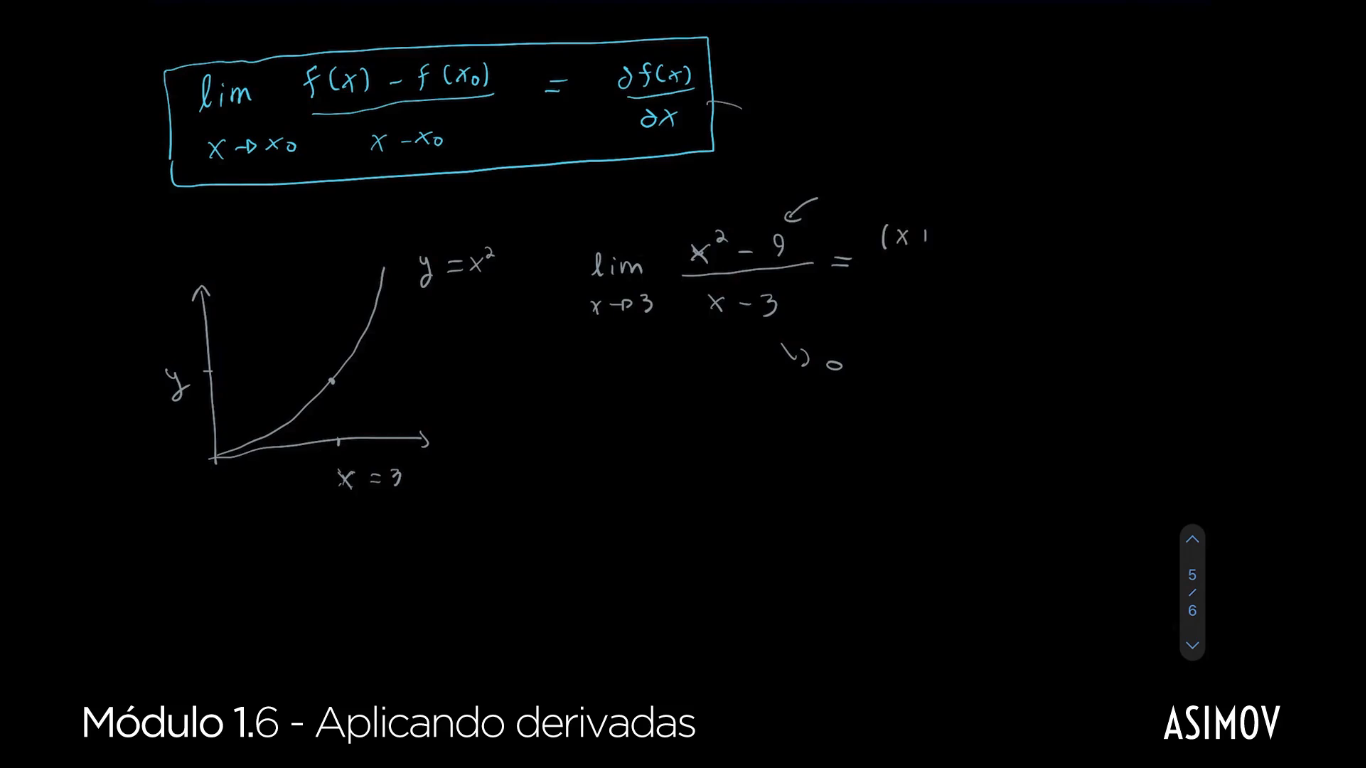 lim f(x) - f(x₀) / x - x₀ = ∂f(x) / ∂x
x → x₀
y = x²
lim x² - 9 / x - 3 = (x
x → 3
↳ 0
y
x = 3
5
/
6
Módulo 1.6 - Aplicando derivadas
ASIMOV